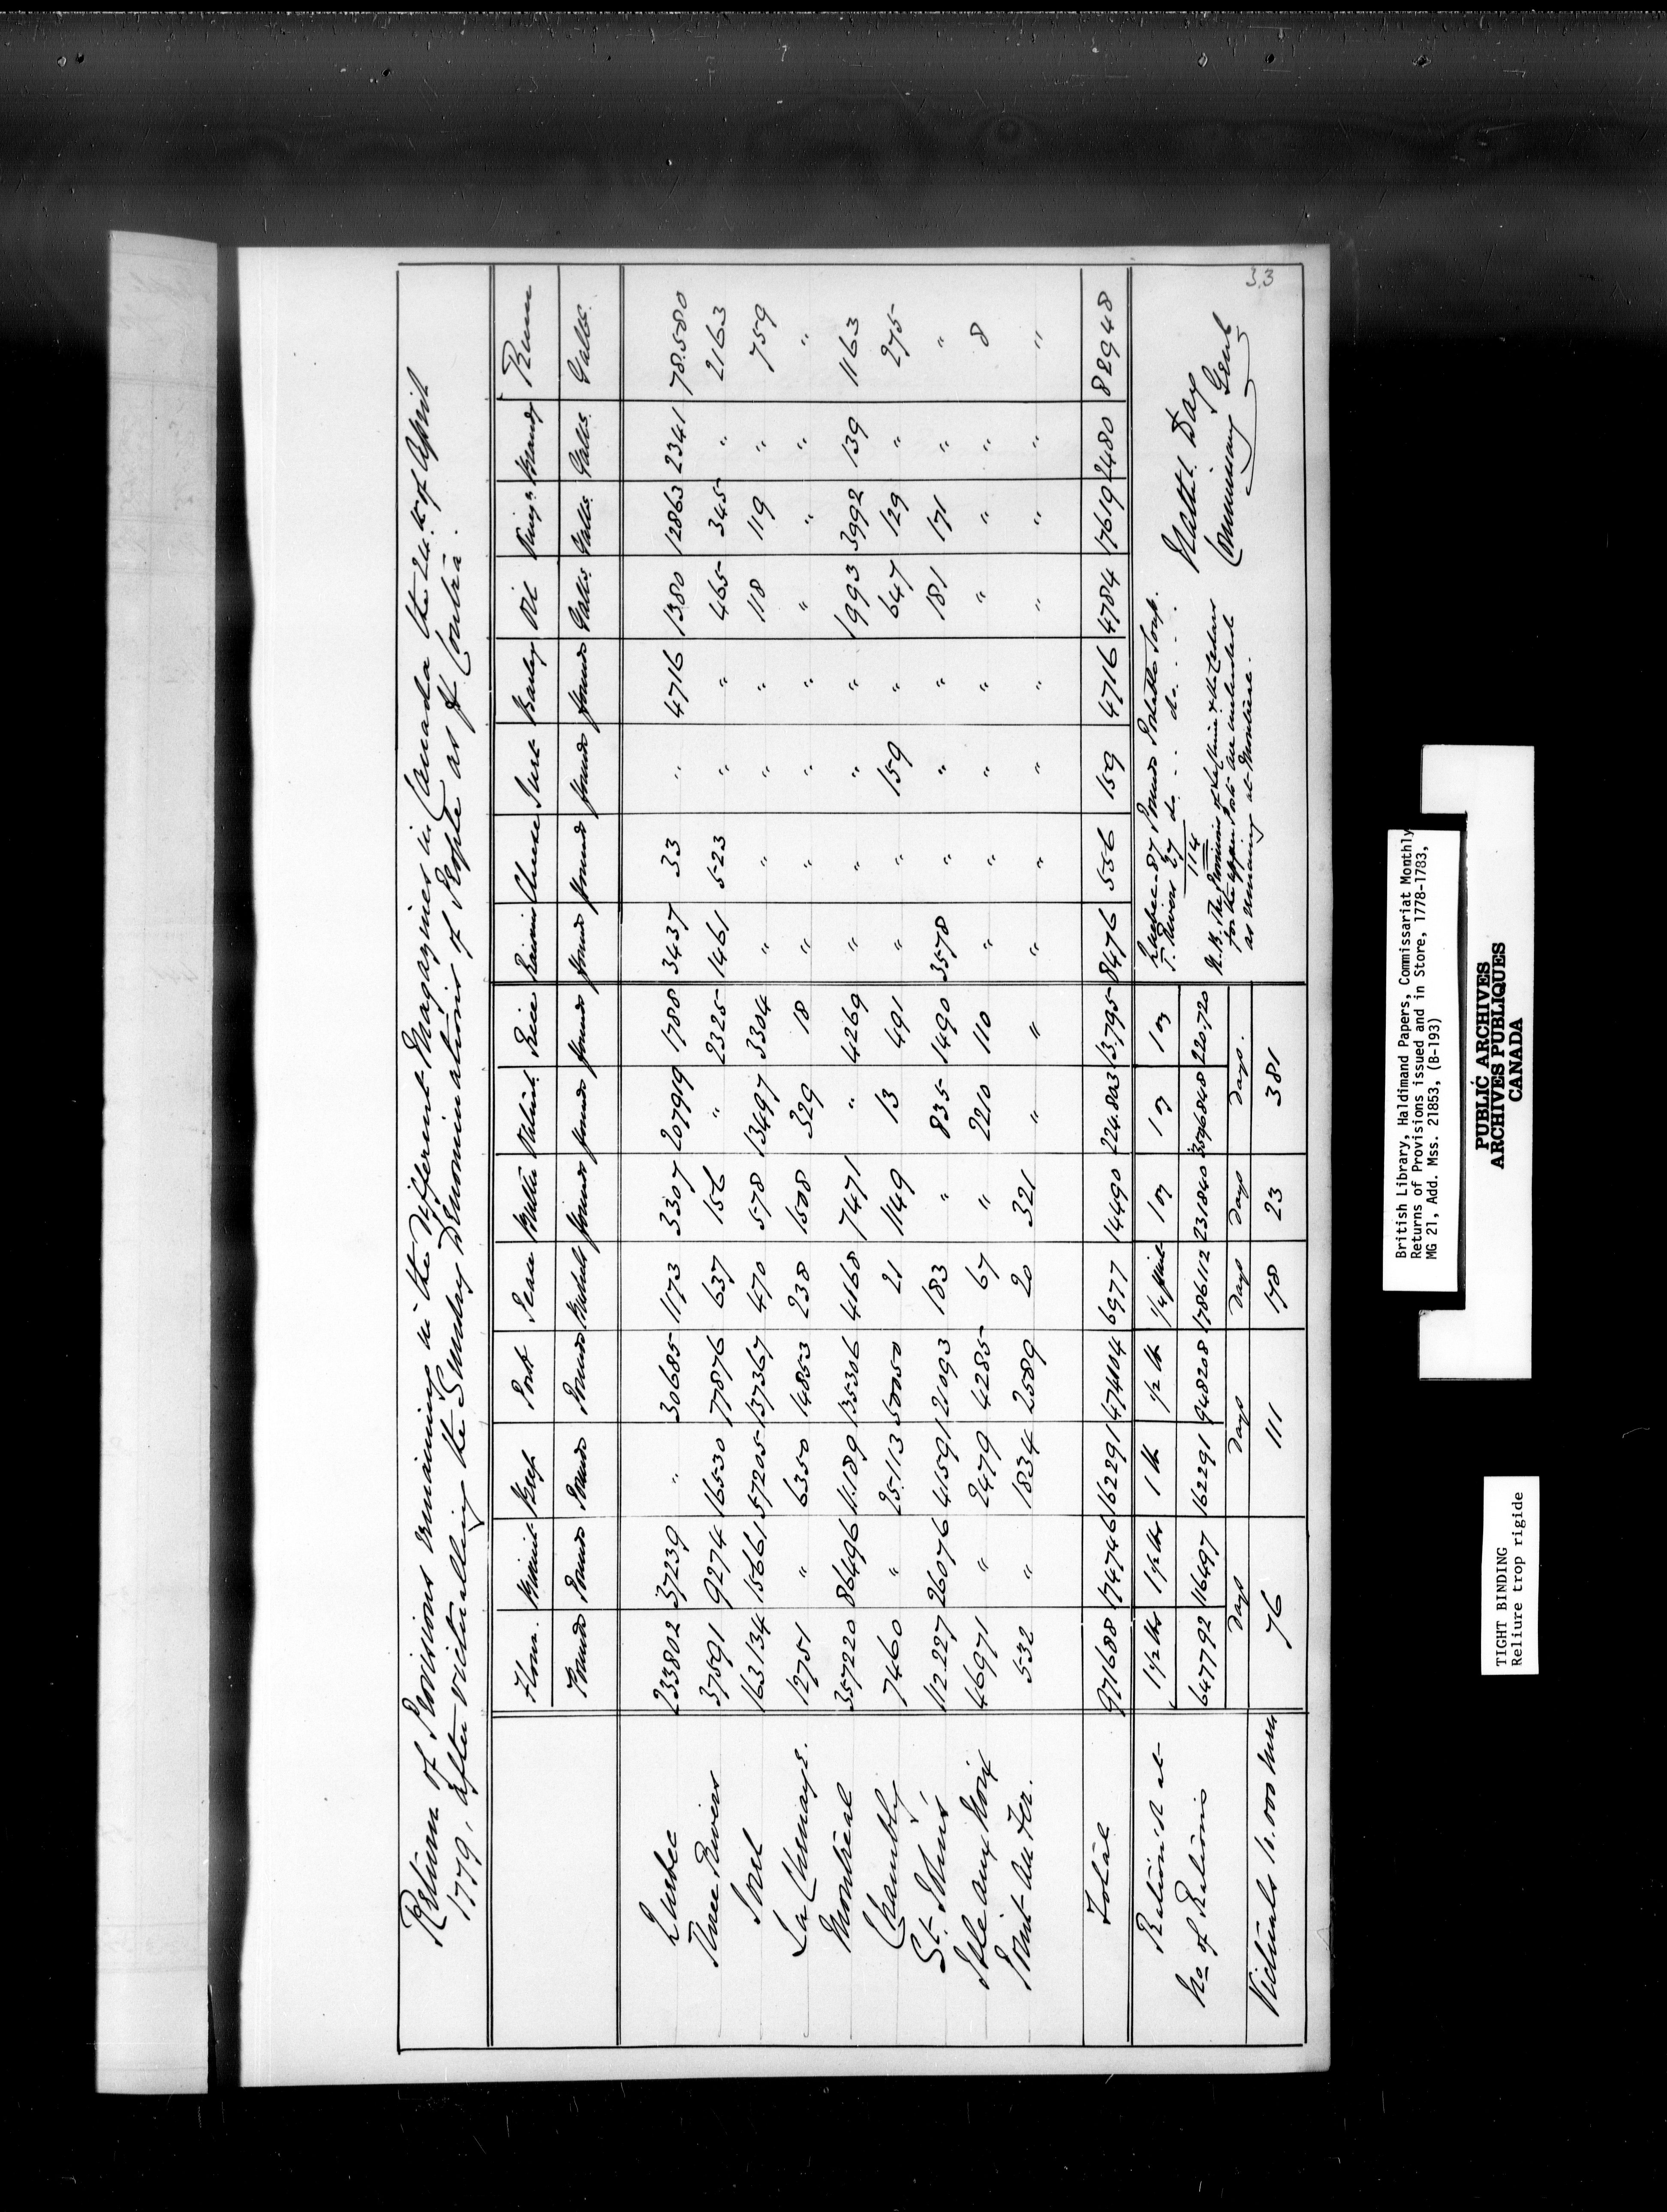 Return of Provisions remaining in the different Magazines in Canada the 24th of April
1779, after victualling the Sundry Denominations of People as P Contra.
Flour. Biscuit Beef Pork Pease Butter Oatmeal Rice Raisins Cheese Suet Barley Oil Vinigr. Brandy Rum
Pounds Pounds Pounds Pounds Bushels Pounds Pounds Pounds Pounds Pounds Pounds Pounds Galls. Galls. Galls. Galls.
Quebec 233802 37239 " 30685 1173 3307 207919 1788 3437 33 " 4716 1380 12863 2341 78.580
Three Rivers 37591 9274 16530 77876 637 156 " 2325 1461 523 " " 465 345 " 2163
Sorel 163134 15661 57205 137367 470 578 13497 3304 " " " " 118 119 " 759
La Chenaye. 12751 " 6350 14853 238 1508 329 18 " " " " " " " "
Montréal 357220 86496 11.189 135306 4168 7471 " 4269 " " " " 1993 3992 139 1163
Chambly 7460 " 25.113 50050 21 1149 13 491 " " 159 " 647 129 " 275
St. Johns 112227 26076 41591 21093 183 " 835 1490 3578 " " " 181 171 " "
Isle aux Noix 46971 " 2479 4285 67 " 2210 110 " " " " " " " 8
Point au Fer. 532 " 1834 2589 20 321 " " " " " " " " " "
Total 971688 174746 162291 474104 6977 14490 224.803 13.795 8476 556 159 4716 4784 17619 2480 82948
Ration'd at 1 1/2 lbs 1 1/2 lbs 1 lb 1/2 lb 1/4 pint 1 oz 1 oz 1 oz
No of Rations 647792 116497 162291 948208 1786112 231840 3596848 220.720
Days Days Days Days Days.
Victuals 10.000 Men 76 111 178 23 381
Quebec 87 Pounds Portable Soup.
T. Rivers 27 do. . . . do. . . .
114
N.B. The Provisions of La Chine & the Cedars
for the upper Posts are understood
as remaining at Montréal.
Nathl. Day
Commissary Genl
33
British Library, Haldimand Papers, Commissariat Monthly
Returns of Provisions issued and in Store, 1778-1783,
MG 21, Add. Mss. 21853, (B-193)
PUBLIC ARCHIVES
ARCHIVES PUBLIQUES
CANADA
TIGHT BINDING
Reliure trop rigide